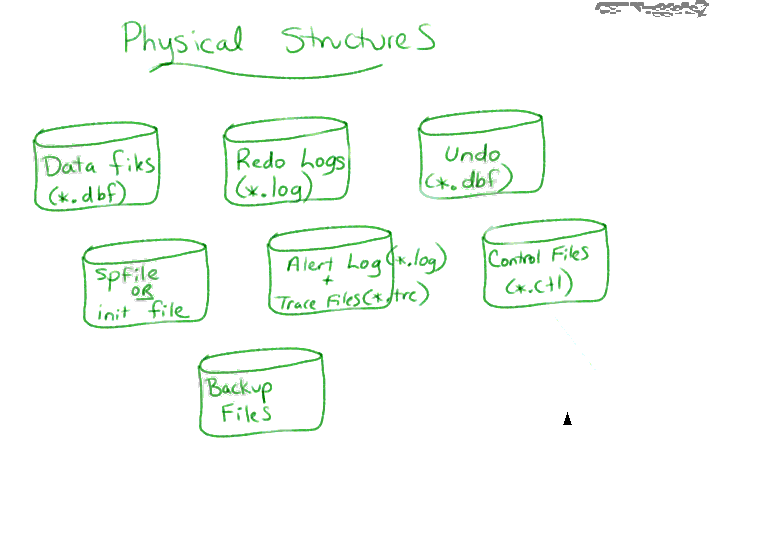 Physical Structures
Data files
(*.dbf)
Redo Logs
(*.log)
Undo
(*.dbf)
spfile
OR
init file
Alert Log (*.log)
+
Trace Files (*.trc)
Control Files
(*.ctl)
Backup
Files